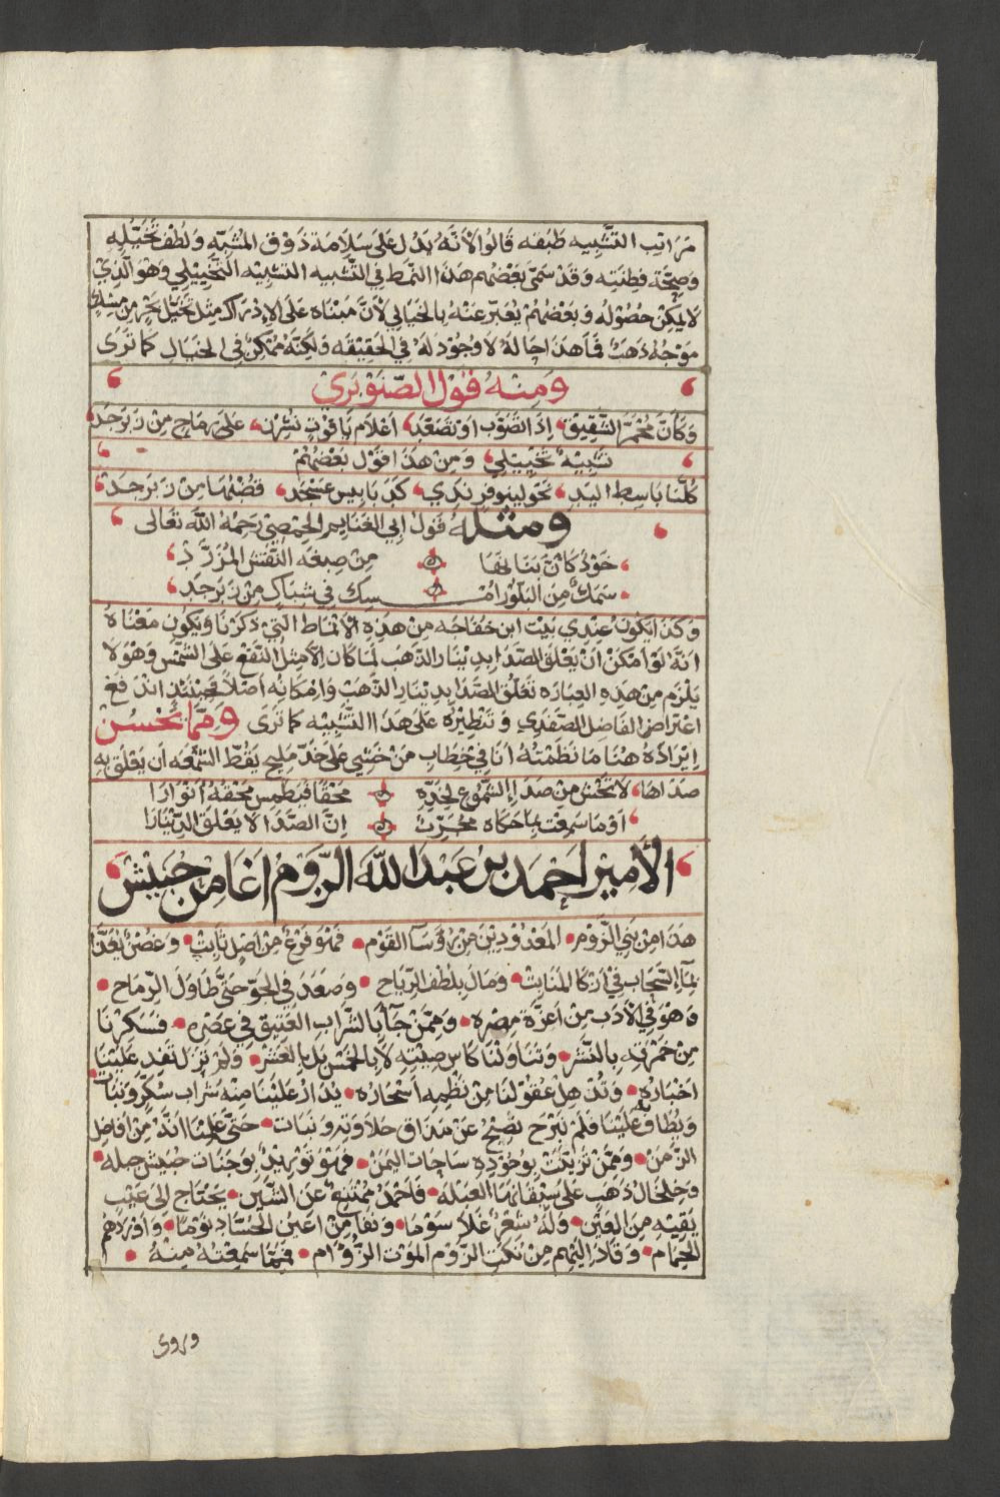 مَرَاتِبِ التَّشْبِيهِ طَبَقَه قَالُوا لأَنَّهُ يَدُل عَلى سَلَامَة ذَوْقِ المُشَبِّهِ وَلُطْفِ تَخَيُّلِهِ
وَصِحَّةِ فِطْنَتِهِ وَقَدْ سَمَّى بَعْضُهُم هَذَا النَمَط في التَّشْبِيه التَشْبِيْه التَّخْيِيْلي وَهُوَ الَّذِيْ
لا يُمكِنْ حُصُوْلُه وَبَعْضُهُمْ يُعَبِّر عَنْهُ بِالخَيَالي لأَنَّ مَبْنَاه عَلَى الإِدْرَاك مِثل تَخَيُّل بَحْر مِن مِسْك
مَوْجُهُ ذَهَبْ فَاهَذا حَالهُ لا وُجُوْد لَهُ فِي الحَقِيْقَه وَلَكِنَّهُ مُمْكِنٌ في الخيَالِ كَمَا تَرَى
وَمِنْهُ قَوْل الصَّنَوْبَرِيْ
وَكَأَنَّ مُحْمَرَّ الشَّقِيْقِ إِذَا تَصَوَّبَ اوْ تَصَعَّدْ اعْلَام يَاقُوْتٍ نُشِرْنَ عَلَى رِمَاحٍ مِن زَبَرْجَدْ
تَشْبِيْهٌ تَخْيِيْلي وَمِنْ هَذَا قَوْل بَعْضُهُمْ
كُلُّنَا بَاسِط اليَدِ نَحْوَ لينوفَر نَدِيْ كَدَبَابِيس عَسْجَد قُضْبُهَا مِن زَبَرْجَدْ
وَمثله قَوْل ابي الغَنَايم الحِمْصي رَحمهُ الله تَعَالى
خَوْدٌ كَأنَّ بَنَانَهَا مِنْ صِبْغَه النَّقْش المُزَرَّدْ
سَمَكٌ مِنَ البَلُّوْر امْسِك في شِبَاكٍ مِن زَبَرْجَدْ
وَكَذَا يَكُوْن عِنْدِي بَيْت ابن خَفَاجَه مِن هَذِهِ الْأَنمَاط الَّتيْ ذَكَرْنَا وَيَكُون مَعْنَاهُ
انَّهُ لَوْ امْكَنْ أنْ يَعْلَقَ الصَّدَا بدِيْنَار الذَّهَبْ لمَا كَان إلاّ مِثْل البقع عَلَى الشمْس وَهُوَ لَا
يَلْزَم مِن هَذِهِ العِبَارَه تَعَلُّق الصَّدَا بدِيْنَار الذَّهَبْ وَامْكَانُه اصْلاً فَحِينَئذٍ انْدَفَعْ
اعْتِرَاض الفَاضِل الصّفَدِي وَتَنْظِيْرُه عَلَى هَذَا التَّشْبِيْه كمَا تَرَى وَمِمَّا يَحْسُنْ
إِيْرَادُهُ هُنَا مَا نَظَمْتُهُ أنَا في خِطَاب مَنْ خَشِي عَلَى خَدِّ مَلِيْح يَقُطّ الشَّمْعَه أن يَعْلَقَ بِهِ
صَدَاهَا لَا تَخْشَ مِنْ صَدَإِ الشُّمُوْع لِخَدِّهِ مَحْقًا فَيَطْمِس مَحْقُهُ انْوَارَا
اوَ مَا سَمِعْتَ بمَا حَكَاه مُجَرِّبٌ إنَّ الصَّدَا لَا يَعْلَقُ الدِّيْنَارَا
الأَمِيْر أَحْمَد بِن عَبْدَ اللّه الرُّوْم اغَا مِن حُبَيْش
هَذَا مِنْ بَنِي الرُّوْمِ المَعْدُوْدِيْنَ مِنْ رُؤسَآ القَوْم فَهُوَ فَرْعٌ مِنْ اصْلٍ ثَابِتْ وَغُصْنٌ يُغَذَّا
بمَآءِ السَّحَاب في ازْكَا المَنَابِتْ وَمَالَ بِلُطْفِ الرِّيَاحِ وَصَعَدَ في الجَوّ حَتَّى طَاوَلَ الرِّمَاح
وَهوَ في الأَدَب مِنْ أعِزَّة مِصْرِهِ وَمِمَّنْ جَآ بِالشَّرَابِ العَتِيْقِ في عَصْرِه فَسَكِرْنَا
مِن خَمْرَتِهِ بالنَّشْرِ وَتَنَاوَلْنَا كَأس صِيْتِهِ لَا بِالخَمْسِ بَلْ بِالعَشْر وَلَمْ تَزَل تَفِدِ عَلَيْنَا
اخْبَارُه وَتُذْهِلُ عُقوْلَنَا مِنْ نَظْمِهِ أسْحَارُه يُدَارُ عَلَيْنَا مِنْهُ شَرَاب سُكَّرٍ وَنَبَات
وَيُطَاف عَلَيْنَا فَلَمْ نَبْرَح نُصْبِحْ عَنْ مَذَاق حَلَاوَتِهِ وَنَبَات حَتَّى عَلِمْنَا انَّهُ مِنْ افَاضِلِ
الزَّمَنْ وَمِمَّنْ تَزَيَّنَتْ بِوُجُوْدِهِ سَاحَات اليَمَنْ فَهْوَ تَوْرِيْدٌ بِوَجَنَات حُبَيْش جبله
وَخلْخَال ذَهَبٍ عَلَى سِيْقَانِهَا العَبْلَه فَأَحْمَدُ مُمْتَنِعٌ عَنِ الشَّيْن يَحْتَاج إِلَى عَيْبٍ
يَقِيْهِ مِنَ العَيْنِ وَلَهُ شِعْرٌ غَلَا سَوْمًا وَنَفَا مِنْ اعْيُنِ الحُسَّادِ نَوْمًا وَأوْرَدَهُمْ
الحِمَام وَقَادَ إِلَيْهِم مِنْ نُكَتِ الرُّوْمِ المَوْت الزُّؤَام فَمِمَّا سَمِعْتُهُ مِنْهُ
وروى